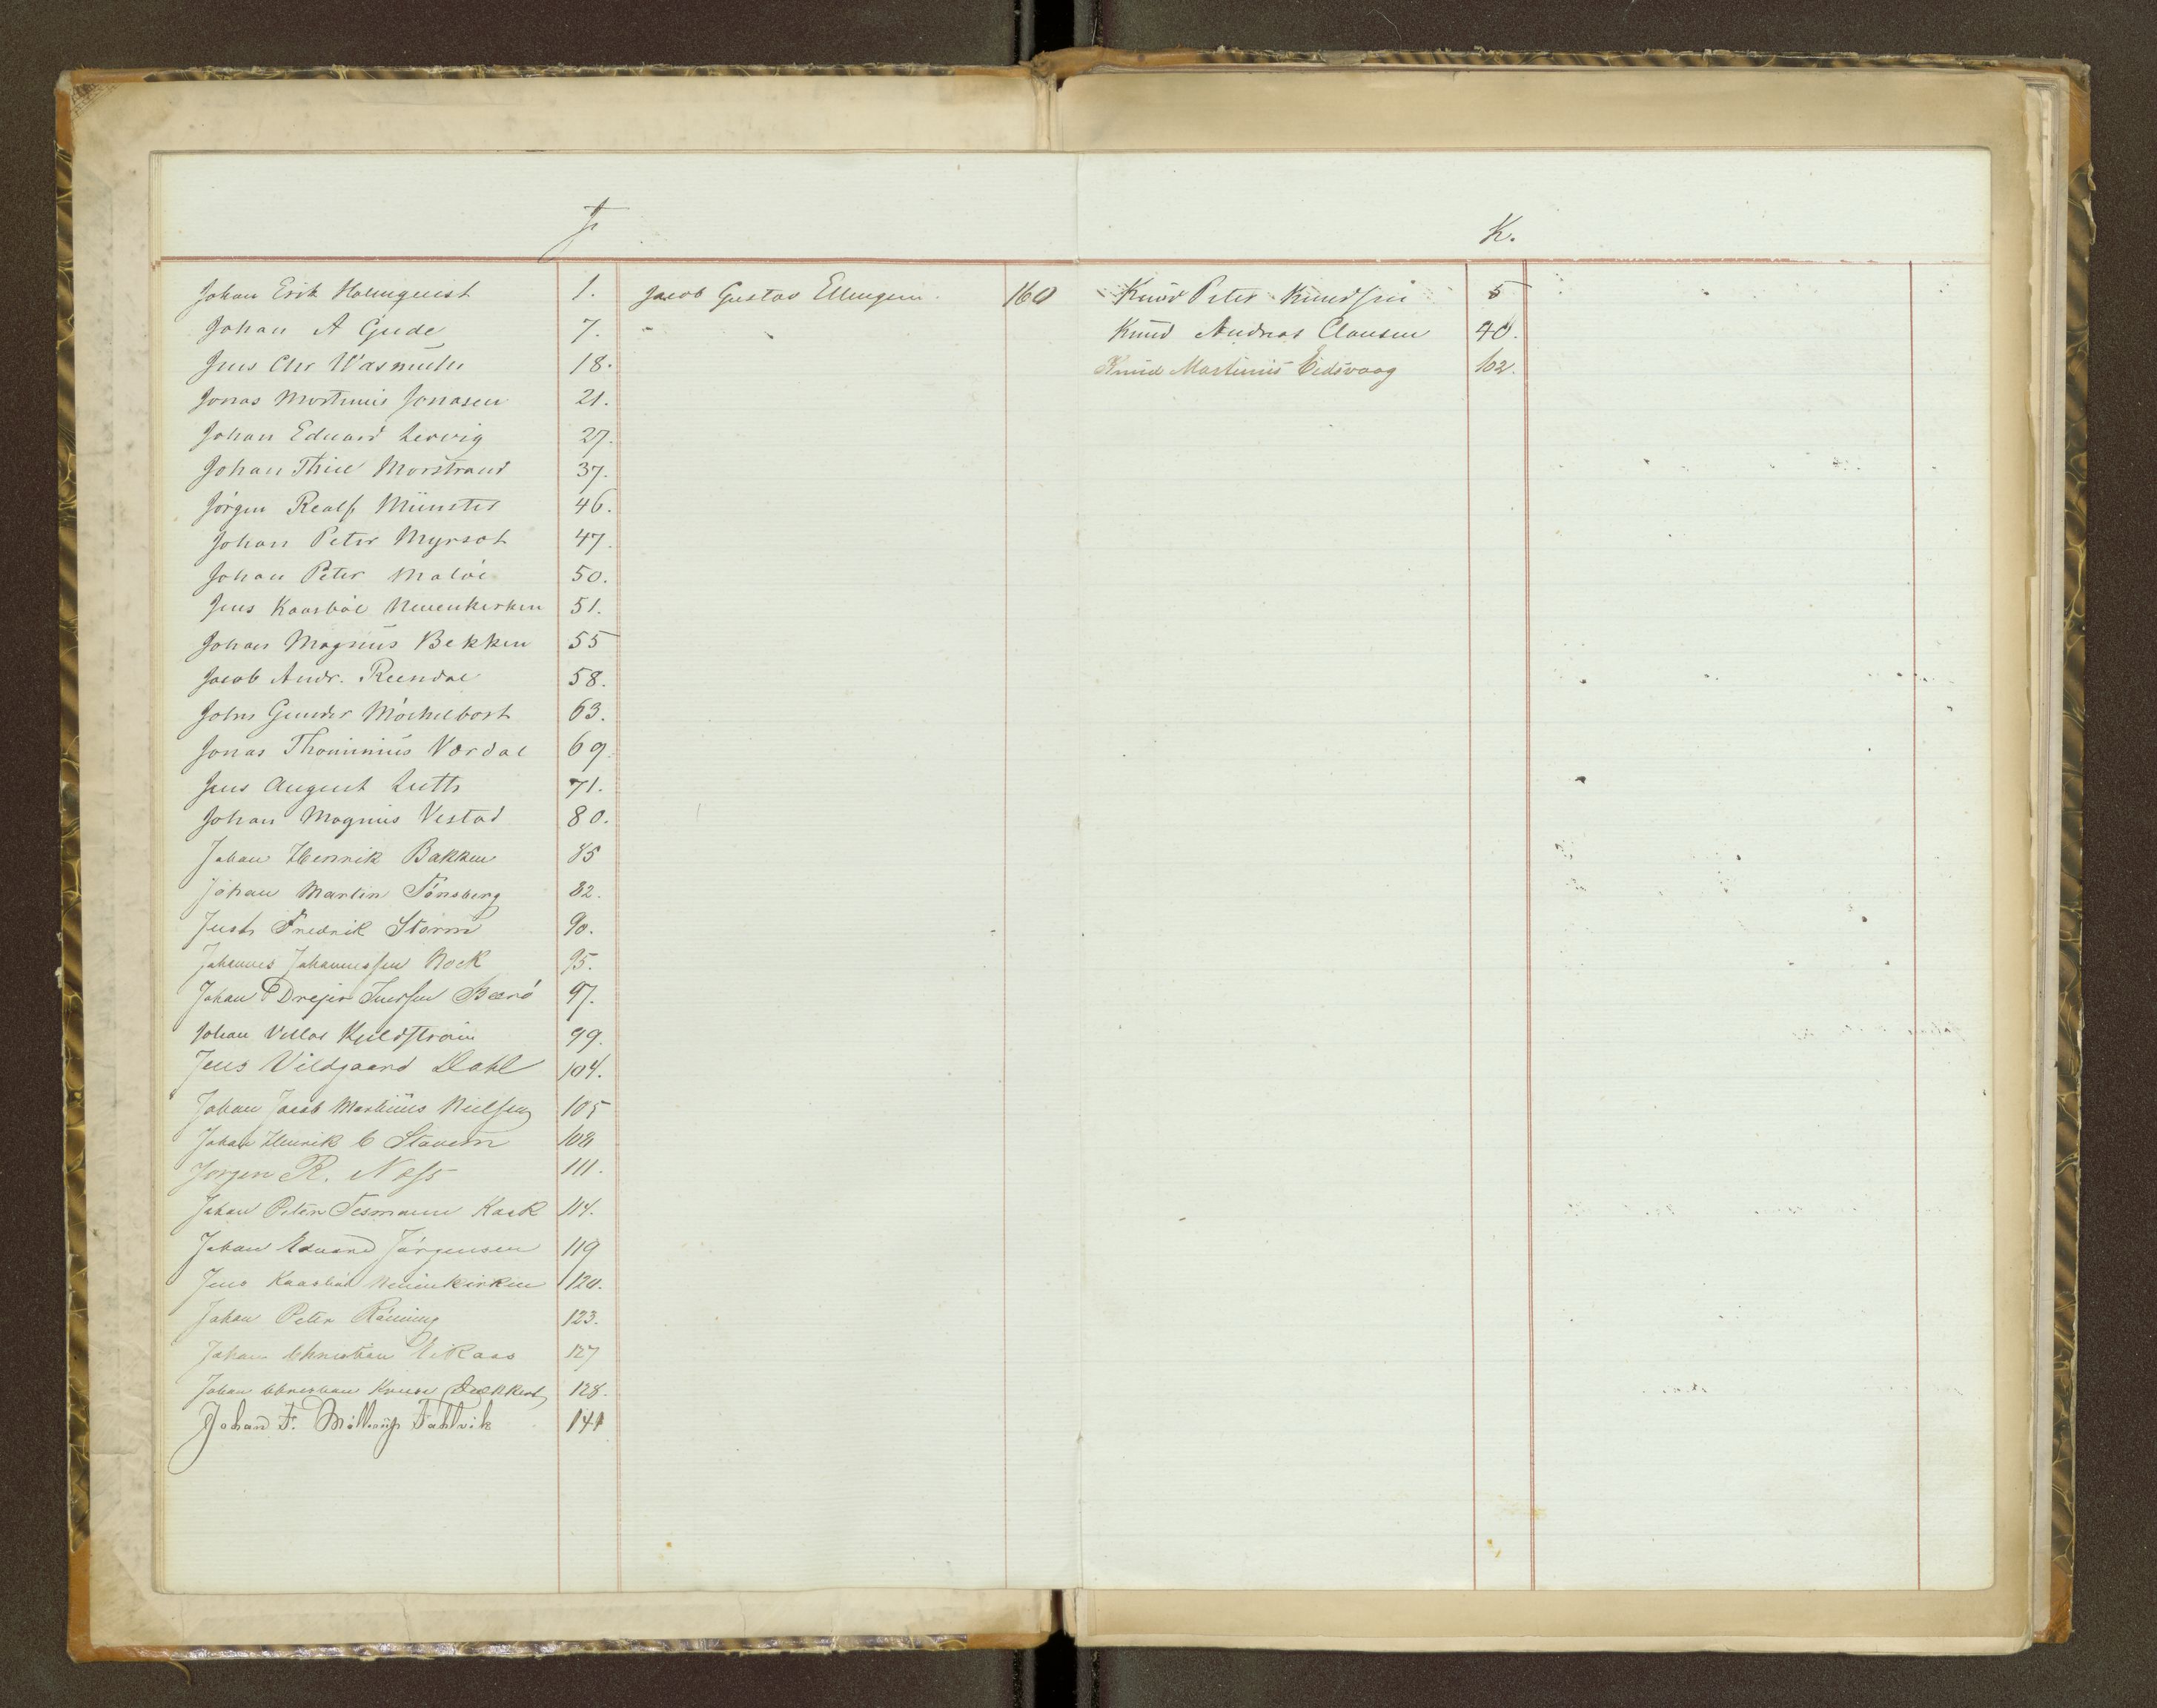 J
Johan Erik Holmquist 1.
Johan A Gude 7.
Jens Chr Wasmuth 18.
Jonas Martinus Jonasen 21.
Johan Eduard Lervig 27.
Johan Thiis Morstrand 37.
Jörgen Realf Münster 46.
Johan Peter Myrsat 47.
Johan Peter Maløe 50.
Jens Kaarbøe Neuenkirken 51.
Johan Magnus Bekken 55
Jacob Andr. Reendal 58.
John Gunder Möchelbost 63.
Jonas Thominius Værdal 69.
Jens August Luth 71.
Johan Magnus Vestad 80.
Johan Henrik Bakken 85
Johan Martin Tönsberg 82.
Just Fredrik Storm 90.
Johannes Johannessen Rock 95.
Johan Drejer Iversen 97.
Johan 99.
Jens Vildgaard Dahl 104.
Johan Jacob Martinus Nielsen 105
Johan Henrik C Stavem 108
Jørgen R. Næss 111.
Johan Peter Tesmann Kaak 114.
Johan Edvard Jörgensen 119
Jens Kaarböe Neuenkirken 120.
Johan Peter Rönning 123.
Johan Christian Eikaas 127
Johan Christian Kruse 128.
Johan F. Mollerup Fahlvik 141
Jacob Gustav Ellingsen. 160
K.
Knud Peter Knudsen 5
Knud Andreas Clausen 40.
Knud Martinus Eidsvaag 102.